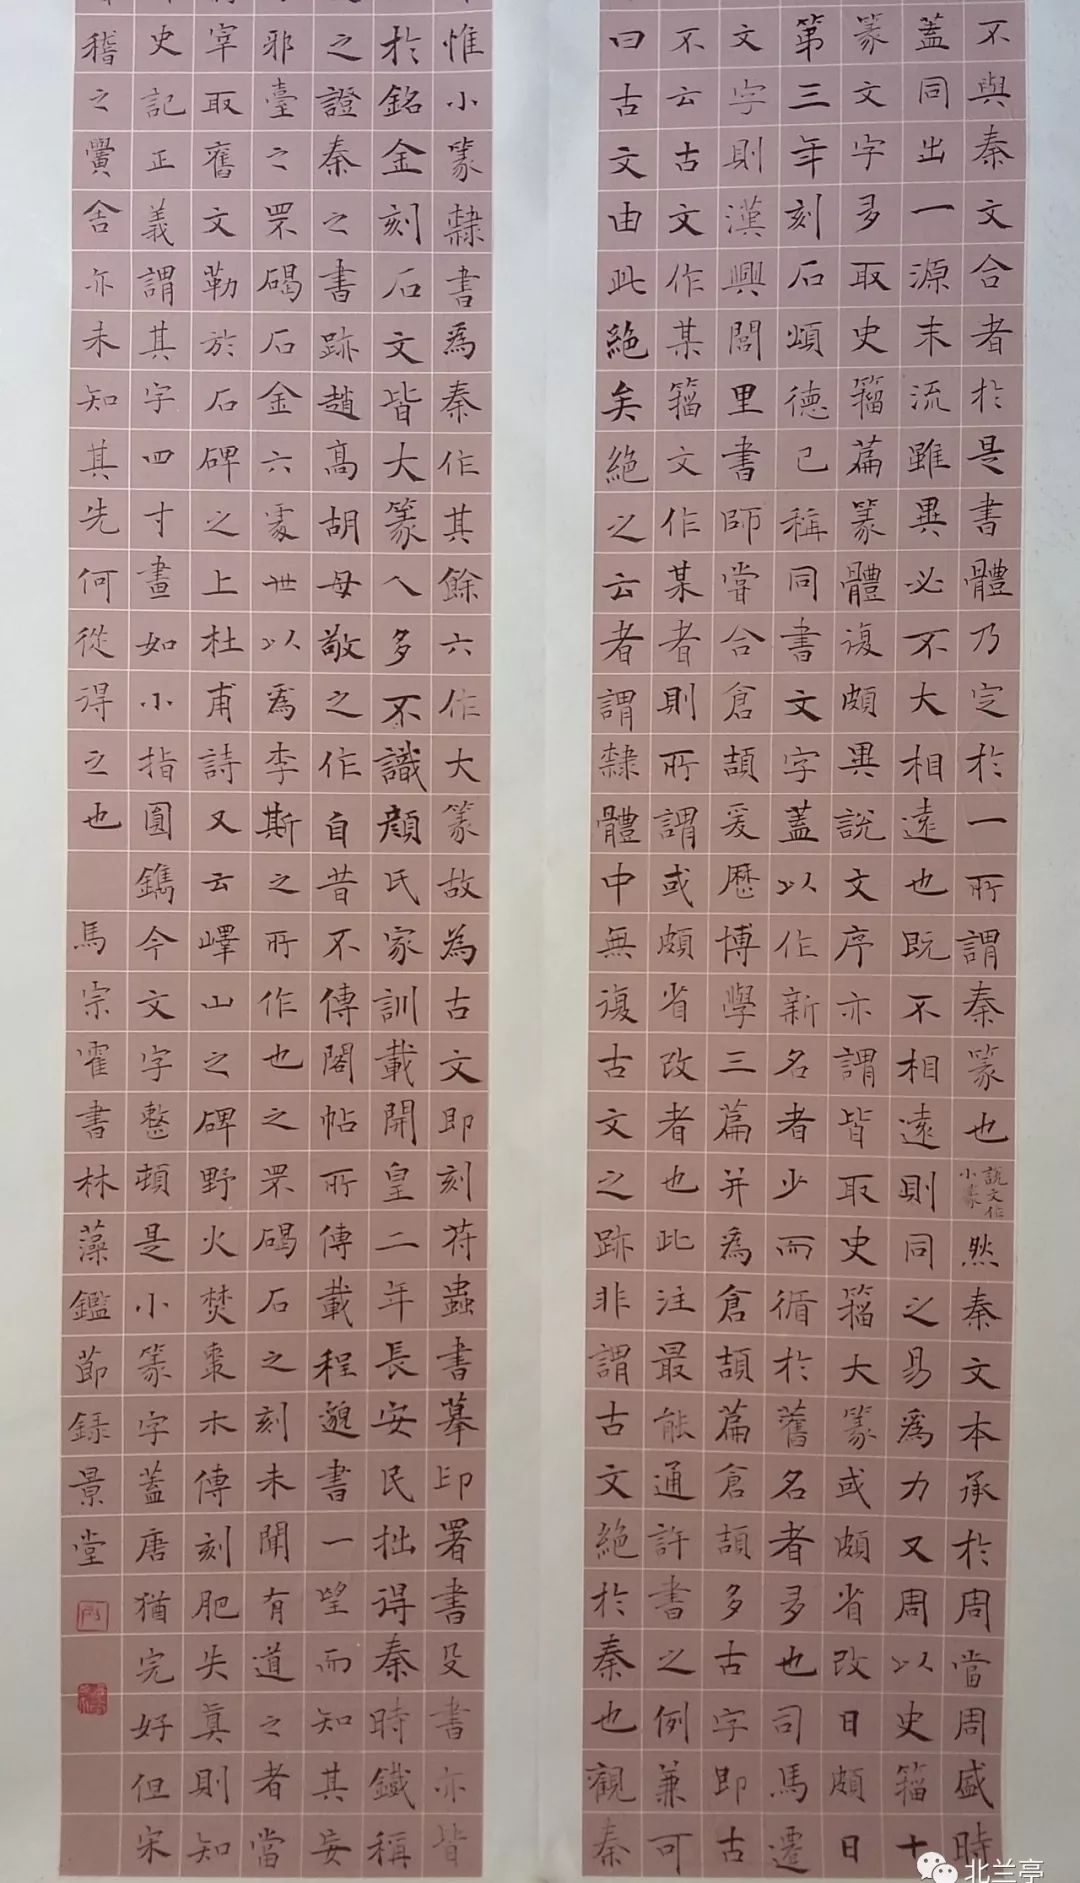 不與秦文合者於是書體乃定於一所謂秦篆也說文作小篆然秦文本承於周當周盛時
蓋同出一源末流雖異必不大相遠也既不相遠則同之易為力又周以史籀十
篆文字多取史籀篇篆體復頗異說文序亦謂皆取史籀大篆或頗省改曰頗曰
第三年刻石頌德已稱同書文字蓋以作新名者少而循於舊名者多也司馬遷
文字則漢興閭里書師嘗合倉頡爰歷博學三篇并為倉頡篇倉頡多古字即古
不云古文作某籀文作某者則所謂或頗省改者也此注最能通許書之例兼可
曰古文由此絕矣絕之云者謂隸體中無復古文之跡非謂古文絕於秦也觀秦
惟小篆隸書為秦作其餘六作大篆故為古文即刻符蟲書摹印署書殳書亦皆
於銘金刻石文皆大篆人多不識顏氏家訓載開皇二年長安民掘得秦時鐵稱
之證秦之書跡趙高胡母敬之作自昔不傳閣帖所傳載程邈書一望而知其妄
邪臺之罘碣石金六處世以為李斯之所作也之罘碣石之刻未聞有道之者當
宰取舊文勒於石碑之上杜甫詩又云嶧山之碑野火焚棗木傳刻肥失真則知
史記正義謂其字四寸畫如小指圓鐫今文字整頓是小篆字蓋唐猶完好但宋
稽之黌舍亦未知其先何從得之也 馬宗霍書林藻鑑節錄景堂
北兰亭